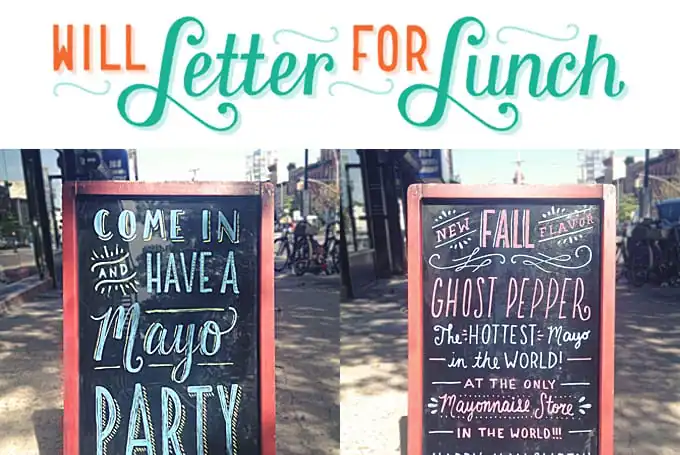 WILL Letter FOR Lunch
COME IN
AND HAVE A
Mayo
PARTY
NEW FALL FLAVOR
GHOST PEPPER
The HOTTEST Mayo
in the WORLD!
AT THE ONLY
Mayonnaise Store
IN THE WORLD!!!